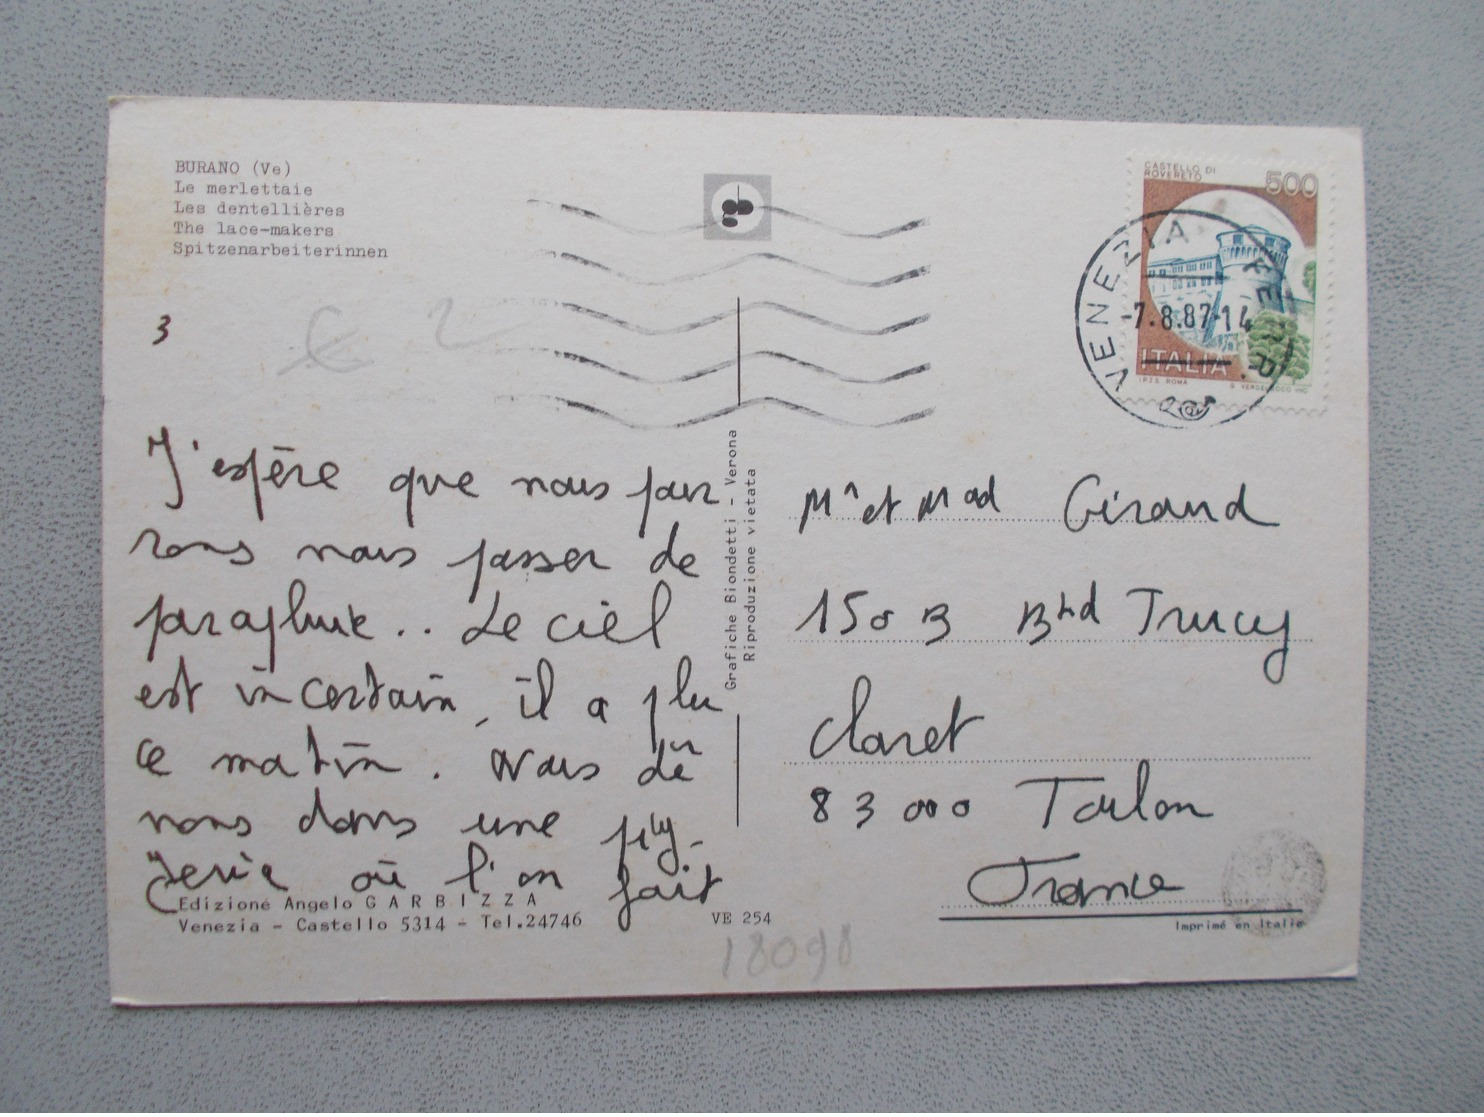 BURANO (Ve)
Le merlettaie
Les dentellières
The lace-makers
Spitzenarbeiterinnen
3
€ 2
J'espère que nous pour
rons nous passer de
parapluie.. Le ciel
est incertain, il a plu
ce matin. Nous dî
nons dans une
où l'on fait
Edizione Angelo GARBIZZA
Venezia - Castello 5314 - Tel.24746
VE 254
18098
Grafiche Biondetti - Verona
Riproduzione vietata
CASTELLO DI
ROVERETO
500
ITALIA
I.P.Z.S. ROMA
VENEZIA
-7.8.87-14
Mr et Mad Giraud
150 B Bd Trucy
Claret
83000 Toulon
France
Imprimé en Italie